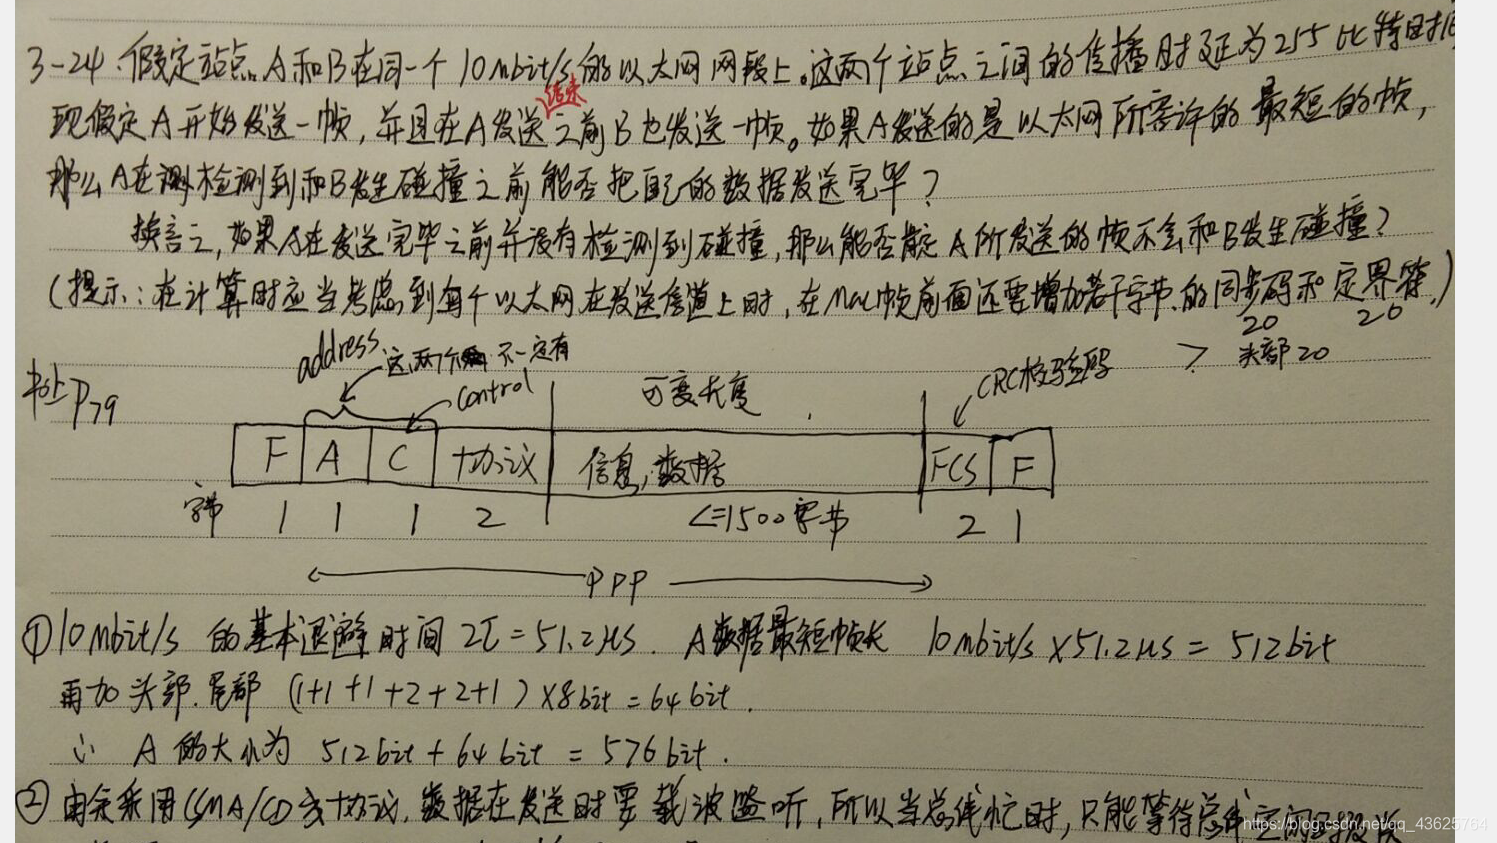 3-24.假定站点A和B在同一个10mbit/s的以太网网段上。这两个站点之间的传播时延为255比特时间
结束
现假定A开始发送一帧,并且在A发送之前B也发送一帧。如果A发送的是以太网所容许的最短的帧,
那么A在测检测到和B发生碰撞之前能否把自己的数据发送完毕?
换言之,如果A在发送完毕之前并没有检测到碰撞,那么能否肯定A所发送的帧不会和B发生碰撞?
(提示:在计算时应当考虑到每个以太网在发送信道上时,在MAC帧前面还要增加若干字节的同步码和定界符.)
20 20
头部20
address 这两个 不一定有
书上P79
control
可变长度
CRC校验段
F A C 协议 信息,数据 FCS F
字节 1 1 1 2 <=1500字节 2 1
PPP
①10mbit/s 的基本退避时间 2τ=51.2μs. A数据最短帧长 10mbit/s×51.2μs=512bit
再加头部.尾部 (1+1+1+2+2+1)×8bit=64bit.
∴ A的大小为 512bit+64bit=576bit.
②由于采用CSMA/CD 协议,数据在发送时要载波监听,所以当总线忙时,只能等待总线空闲
https://blog.csdn.net/qq_43625764